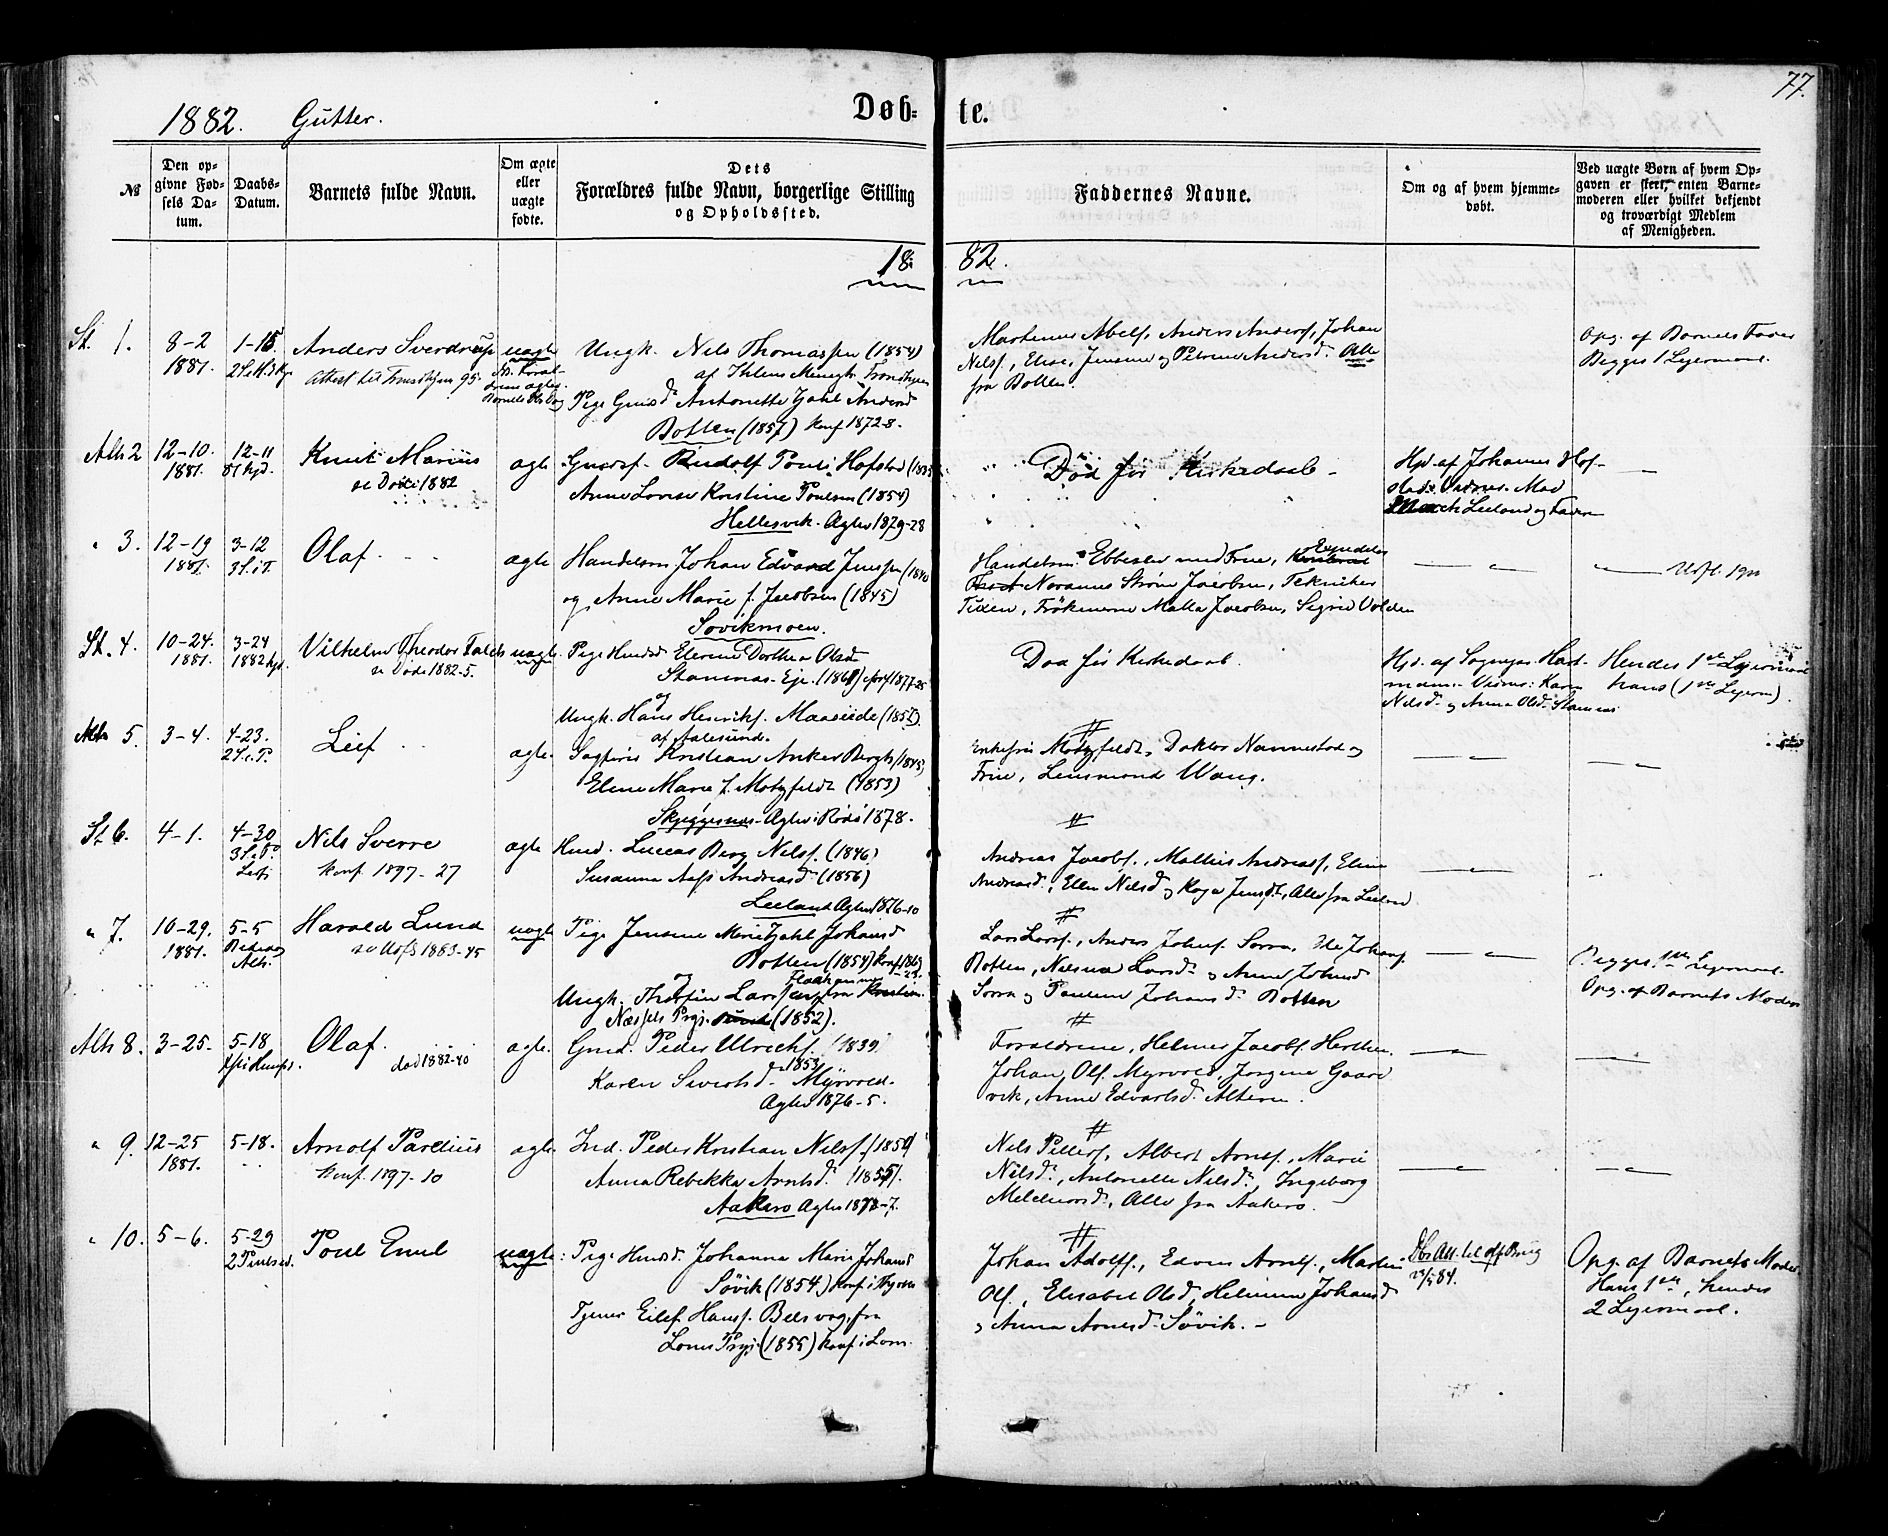 77.
1882. Gutter. Døb- te.
№
Den op-
givne Fød-
sels Da-
tum.
Daabs-
Datum.
Barnets fulde Navn.
Om ægte
eller
uægte
fødte.
Dets
Forældres fulde Navn, borgerlige Stilling
og Opholdssted.
Faddernes Navne.
Om og af hvem hjemme-
døbt.
Ved uægte Børn af hvem Op-
gaven er skeet, enten Barne-
moderen eller hvilket bekjendt
og troværdigt Medlem
af Menigheden.
18 82.
St. 1.
8-2
1881.
1-15
Anders Sverdrup
Attest til Trondhjem 95.
uægte
Ungk. Nils Thomassen (1854)
af Ihlens Menigh. Trondhjem
Pige Gmds Antonette Zahl Andersd
Botten (1857) Konf 1872-8.
Martinus Abels., Anders Anders., Johan
Nilss., Elise, Jensine og Petrine Andersd. Alle
fra Botten.
Opg. af Barnets Fader
Begges 1 Leiermaal.
Alts 2
12-10.
1881.
12-11
81 hjd.
Knut Marius
se Døde 1882
ægte
Rudolf Povls. Hofstad
Anne Lovise Kristine Povlsen (1854)
Hellesvik. Ægtev 1879-28
Død før Kirkedaab -
Hjd. af Johannes Hof-
stad. Vidner. Mad
Leeland og Faderen
" 3.
12-19
1881.
3-12
3 S. i F.
Olaf.
ægte
Handelsm Johan Edvard Jenssen (1840
og Anne Marie f. Jacobsen (1845)
Søvikmoen.
Handelsm. Ebbesen med Frue,
Noranus Strøm Jacobsen, Tekniker
Tiden, Frøknerne Malla Jacobsen, Sigrid Volden
Udfl. 190
St. 4.
10-24.
1881.
3-24
1882 hjd.
Vilhelm Theodor Falch
se Døde 1882-5.
uægte
Pige Husmd Elerine Dorthea Olsd
Stamnes-Eje. (1861) conf 1877-25
og
Ungk. Hans Henriks. Maaseide (1855).
af Aalesund.
Død før Kirkedaab.
Hjd. af Sogнepr. Hart-
mann. Vidner: Karen
Nilsd og Anna Olsd Stamnes
Hendes 1ste Leiermaal
hans (1ste Leierm).
Alts 5.
3-4.
4-23.
2 S. e. P.
Leif
ægte.
Kristian Anker Bergh (1845)
Eline Marie f. Motzfeldt (1853)
Skjeggesnes. Ægtev i Rødø 1878.
Enkefru Motzfeldt, Doktor Nannestad og
Frue, Lensmand Wang.
St 6.
4-1.
4-30
3 S. e. P.
Nils Sverre
Konf 1897-27
ægte
Husmd. Luccas Berg Nilss. (1846)
Susanna Aass Andreasd (1856)
Leeland Ægtev 1876-10
Andreas Jacobs., Mathis Andreass., Eline
Andreasd, Ellen Nilsd og Kaja Jensd, Alle fra Leeland
" 7.
10-29.
1881.
5-5
Bededag
Alts.
Harald Lund
se Udfl 1883-45
uægte
Pige Jensine Marie Zahl Johansd
Botten (1854) Konf 1869
og
Ungk. Thorfin Larssen fra
Næssets Prgj. (1852).
Lars Larss., Anders Johns. Sørra, Ole Johans.
Botten, Nelsine Larsd og Anne Johnsd
Sørra og Pauline Johansd Botten
Begges 1ste Leiermaal.
Opg. af Barnets Moder
Alts 8.
3-25.
5-18
Olaf.
død 1882-40
ægte.
Gmd. Peder Ulrichs. (1839)
Karen Sivertsd 1853 Myrvold.
Ægtev 1876-5.
Forældrene, Helmer Jacobs.
Johan Ols. Myrvold, Jørgine Gaard
vik, Anne Edvardsd. Alteren.
" 9.
12-25
1881.
5-18.
Arnolf Parelius
Konf. 1897-10
ægte.
Ind. Peder Kristian Nilss. (1859)
Anna Rebekka Arntsd (1855).
Aakerø Ægtev 1878-7.
Nils Petters., Albert Arnts., Marie
Nilsd., Antonette Nilsd, Ingeborg
Melchiorsd, Alle fra Aakerø.
" 10.
5-6.
5-29
2 Pintsed.
Povl Emil
uægte:
Pige Husmd. Johanna Marie Johansd
Søvik (1854) Konf i
Tjener Eilef Hans. Belsvag, fra
Loms Prgj. (1855) Konf i Lom.
Johan Adolfs., Edvin Arnts., Martin
Ols., Elisabet Olsd, Helmine Johansd
og Anna Arntsd. Søvik. -
Dbs Att. til off Brug
Opg. af Barnets Moder.
Hans 1ste, hendes
2 Leiermaal.